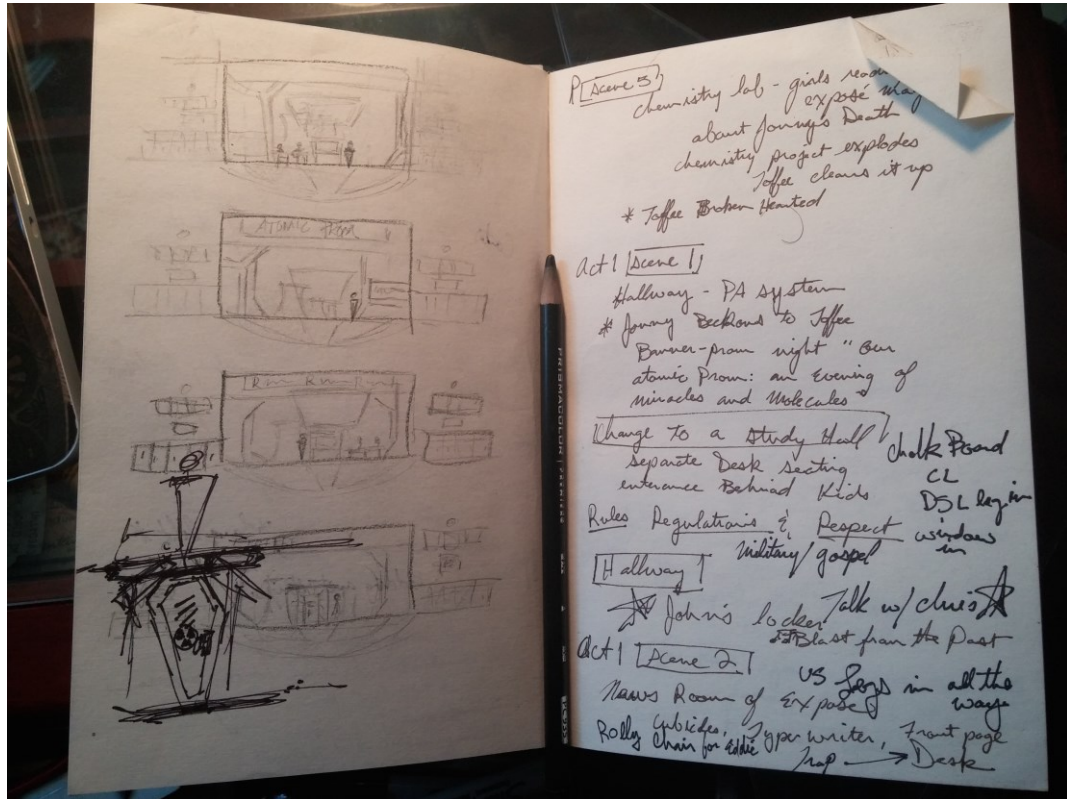 ATOMIC PROM
Rm Rm Rm
PRISMACOLOR PREMIER
P Scene 5
chemistry lab - girls read
exposé mag
about Jonny's Death
chemistry project explodes
Toffee cleans it up
* Toffee Broken Hearted
Act 1 Scene 1
Hallway - PA system
* Jonny Beckons to Toffee
Banner-prom night "Our
atomic Prom: an Evening of
miracles and Molecules"
Change To a Study Hall
separate Desk seating
entrance Behind Kids
Chalk Board
CL
DSL leg in
window
in
Rules Regulations & Respect
military/gospel
Hallway
John's locker Talk w/ chris
Blast from the Past
Act 1 Scene 2
US Legs in all the
way
News Room of Exposé
Cubicles, Typewriter, Front page
Rolly Chair for Eddie
Trap → Desk